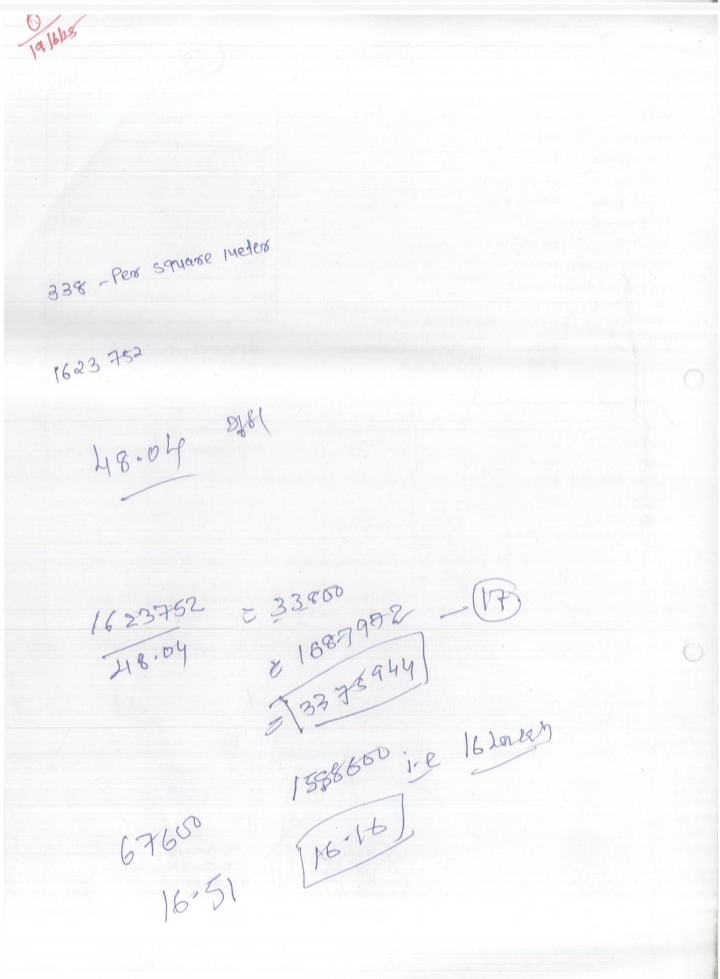 19/6/25
338 - Per square meter
1623752
48.04
1623752 = 33800
48.04
= 1687972 - 17
= 3375944
1588600 i.e 16
67600
16.16
16.51